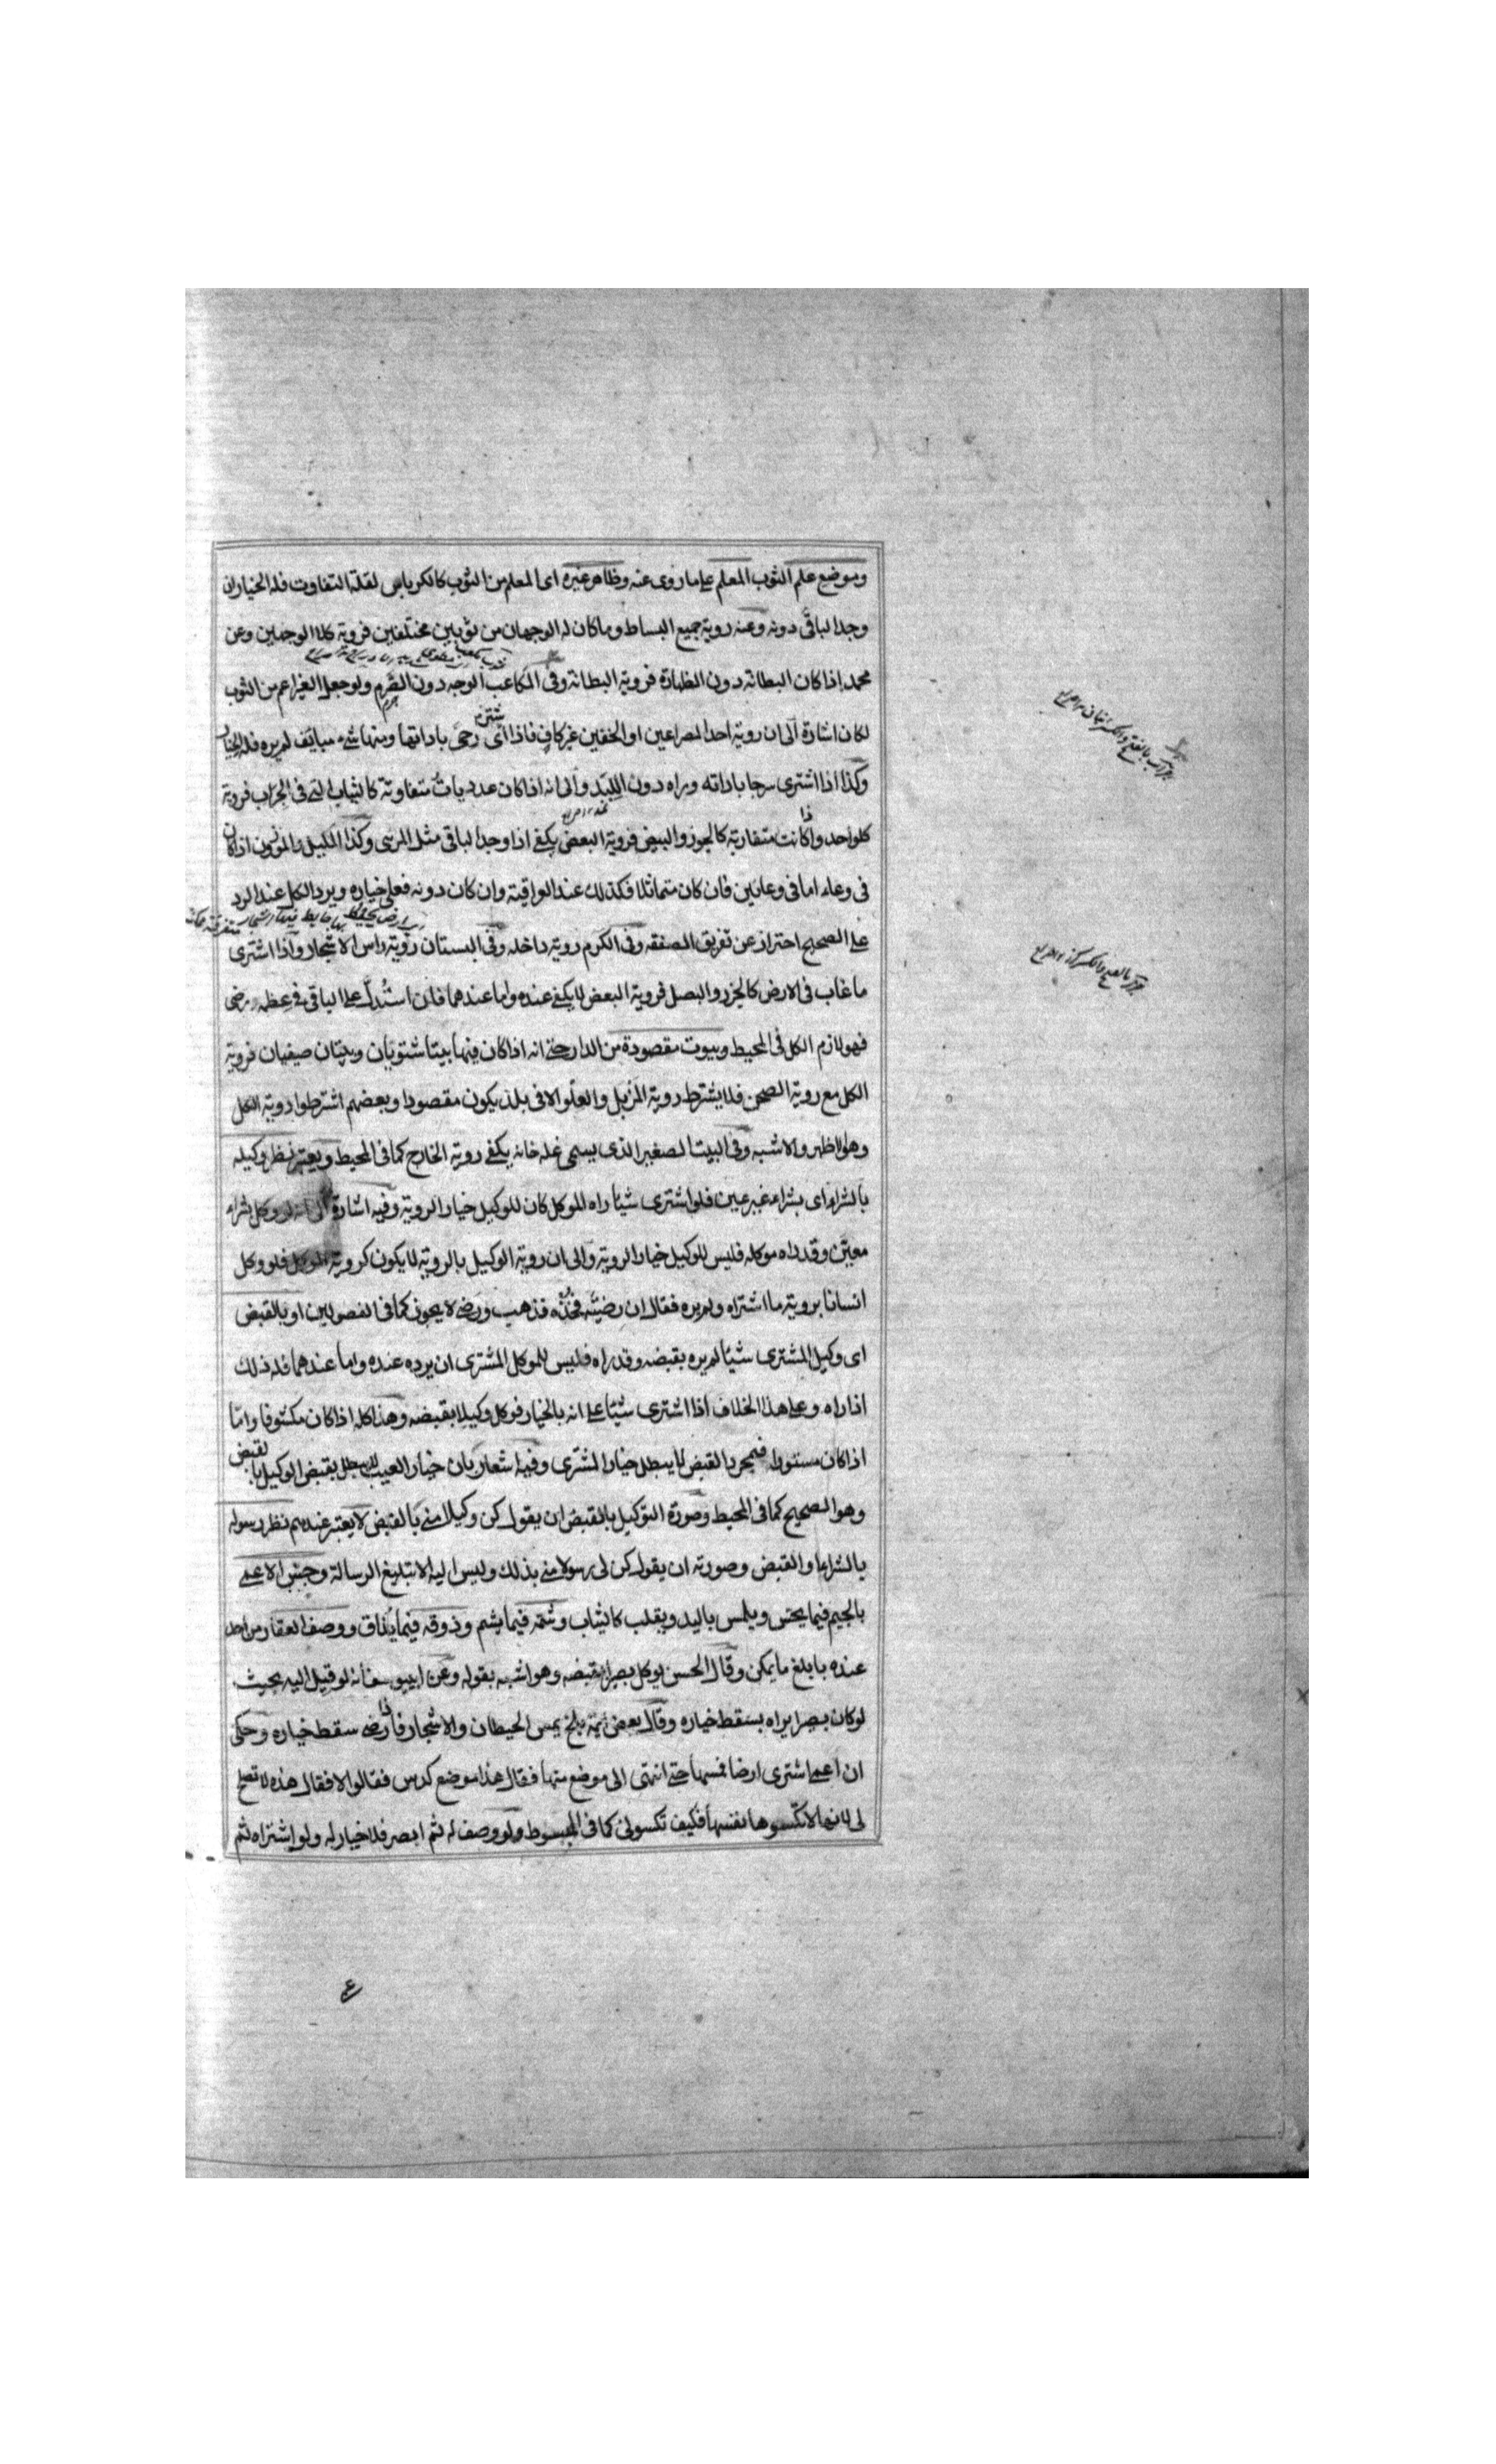 وموضع علم الثوب المعلم على ما روى عنه وظاهر غيره اى المعلم من الثوب كالكرباس لقلة التفاوت فله الخيار ان
وجد الباقى دونه وعنه روية جميع البساط وما كان له الوجهان من ثوبين مختلفين فروية كلا الوجهين وعن
محمد اذا كان البطانة دون الظهارة فروية البطانة وفى المكاعب الوجه دون الصرم ولو جعل الغير اعم من الثوب
لكان اشارة الى ان روية احد المصراعين او الخفين غير كاف فاذا اشترى رحى باداتها ومنها شىء مباين لم يره فله الخيار
وكذا اذا اشترى سرجا باداته وراه دون اللبد والى انه اذا كان عدديات متفاوتة كالثياب التى فى الجراب فروية
كل واحد واذا كانت متقاربة كالجوز والبيض فروية البعض يكفى اذا وجد الباقى مثل المرئى وكذا المكيل والموزون اذا كان
فى وعاء اما فى وعائين فان كان متماثلا فكذلك عند العراقية وان كان دونه فعلى خياره ويرد الكل عند الرد
على الصحيح احتراز عن تفريق الصفقة وفى الكرم روية داخله وفى البستان روية راس الاشجار واذا اشترى
ما غاب فى الارض كالجزر والبصل فروية البعض لا يكفى عنده واما عندهما فان استدل على الباقى فى عظمه ورضى
فهو لازم الكل فى المحيط وبيوت مقصودة من الدار حتى انه اذا كان فيها بيتا شتويان وبيتان صيفيان فروية
الكل مع روية الصحن فلا يشترط روية المزبل والعلو الا فى بلد يكون مقصودا وبعضهم اشترطوا روية الكل
وهو الاظهر والاشبه وفى البيت الصغير الذى يسمى غله خانه يكفى روية الخارج كما فى المحيط ويعتبر نظر وكيله
بالشراء اى بشراء غير عين فلو اشترى شيئا راه الموكل كان للوكيل خيار الروية وفيه اشارة الى انه لو وكل بشراء
معين وقد راه موكله فليس للوكيل خيار الروية والى ان روية الوكيل بالروية لا يكون كروية الموكل فلو وكل
انسانا بروية ما اشتراه ولم يره فقال ان رضيته فخذه فذهب ورضى لا يجوز كما فى الفصولين او بالقبض
اى وكيل المشترى شيئا لم يره بقبضه وقد راه فليس للموكل المشترى ان يرده عنده واما عندهما فله ذلك
اذا راه وعلى هذا الخلاف اذا اشترى شيئا على انه بالخيار فوكل وكيلا بقبضه وهذا كله اذا كان مكشوفا واما
اذا كان مستورا فبمجرد القبض لا يبطل خيار المشترى وفيه اشعار بان خيار العيب لا يبطل بقبض الوكيل بالقبض
وهو الصحيح كما فى المحيط وصورة التوكيل بالقبض ان يقول كن وكيلا منى بالقبض لا يعتبر عندهم نظر رسوله
بالشراء والقبض وصورته ان يقول كن لى رسولا منى بذلك وليس اليه الا تبليغ الرسالة وجس الاعمى
بالجيم فيما يجس ويلمس باليد ويقلب كالثياب وشمه فيما يشم وذوقه فيما يذاق ووصف العقار من احد
عنده بابلغ ما يمكن وقال الحسن يوكل بصيرا بقبضه وهو اشبه بقوله وعن ابى يوسف انه لو قيل اليه بحيث
لو كان بصيرا يراه يسقط خياره وقال بعض ائمة بلخ يمس الحيطان والاشجار فاذا رضى سقط خياره وحكى
ان اعمى اشترى ارضا فمسها حتى انتهى الى موضع منها فقال هذا موضع كدس فقالوا لا فقال هذه لا تصلح
لى لانها لا تكسوها نفسها فكيف تكسونى كما فى المبسوط ولو وصف له ثم ابصر فلا خيار له ولو اشتراه ثم